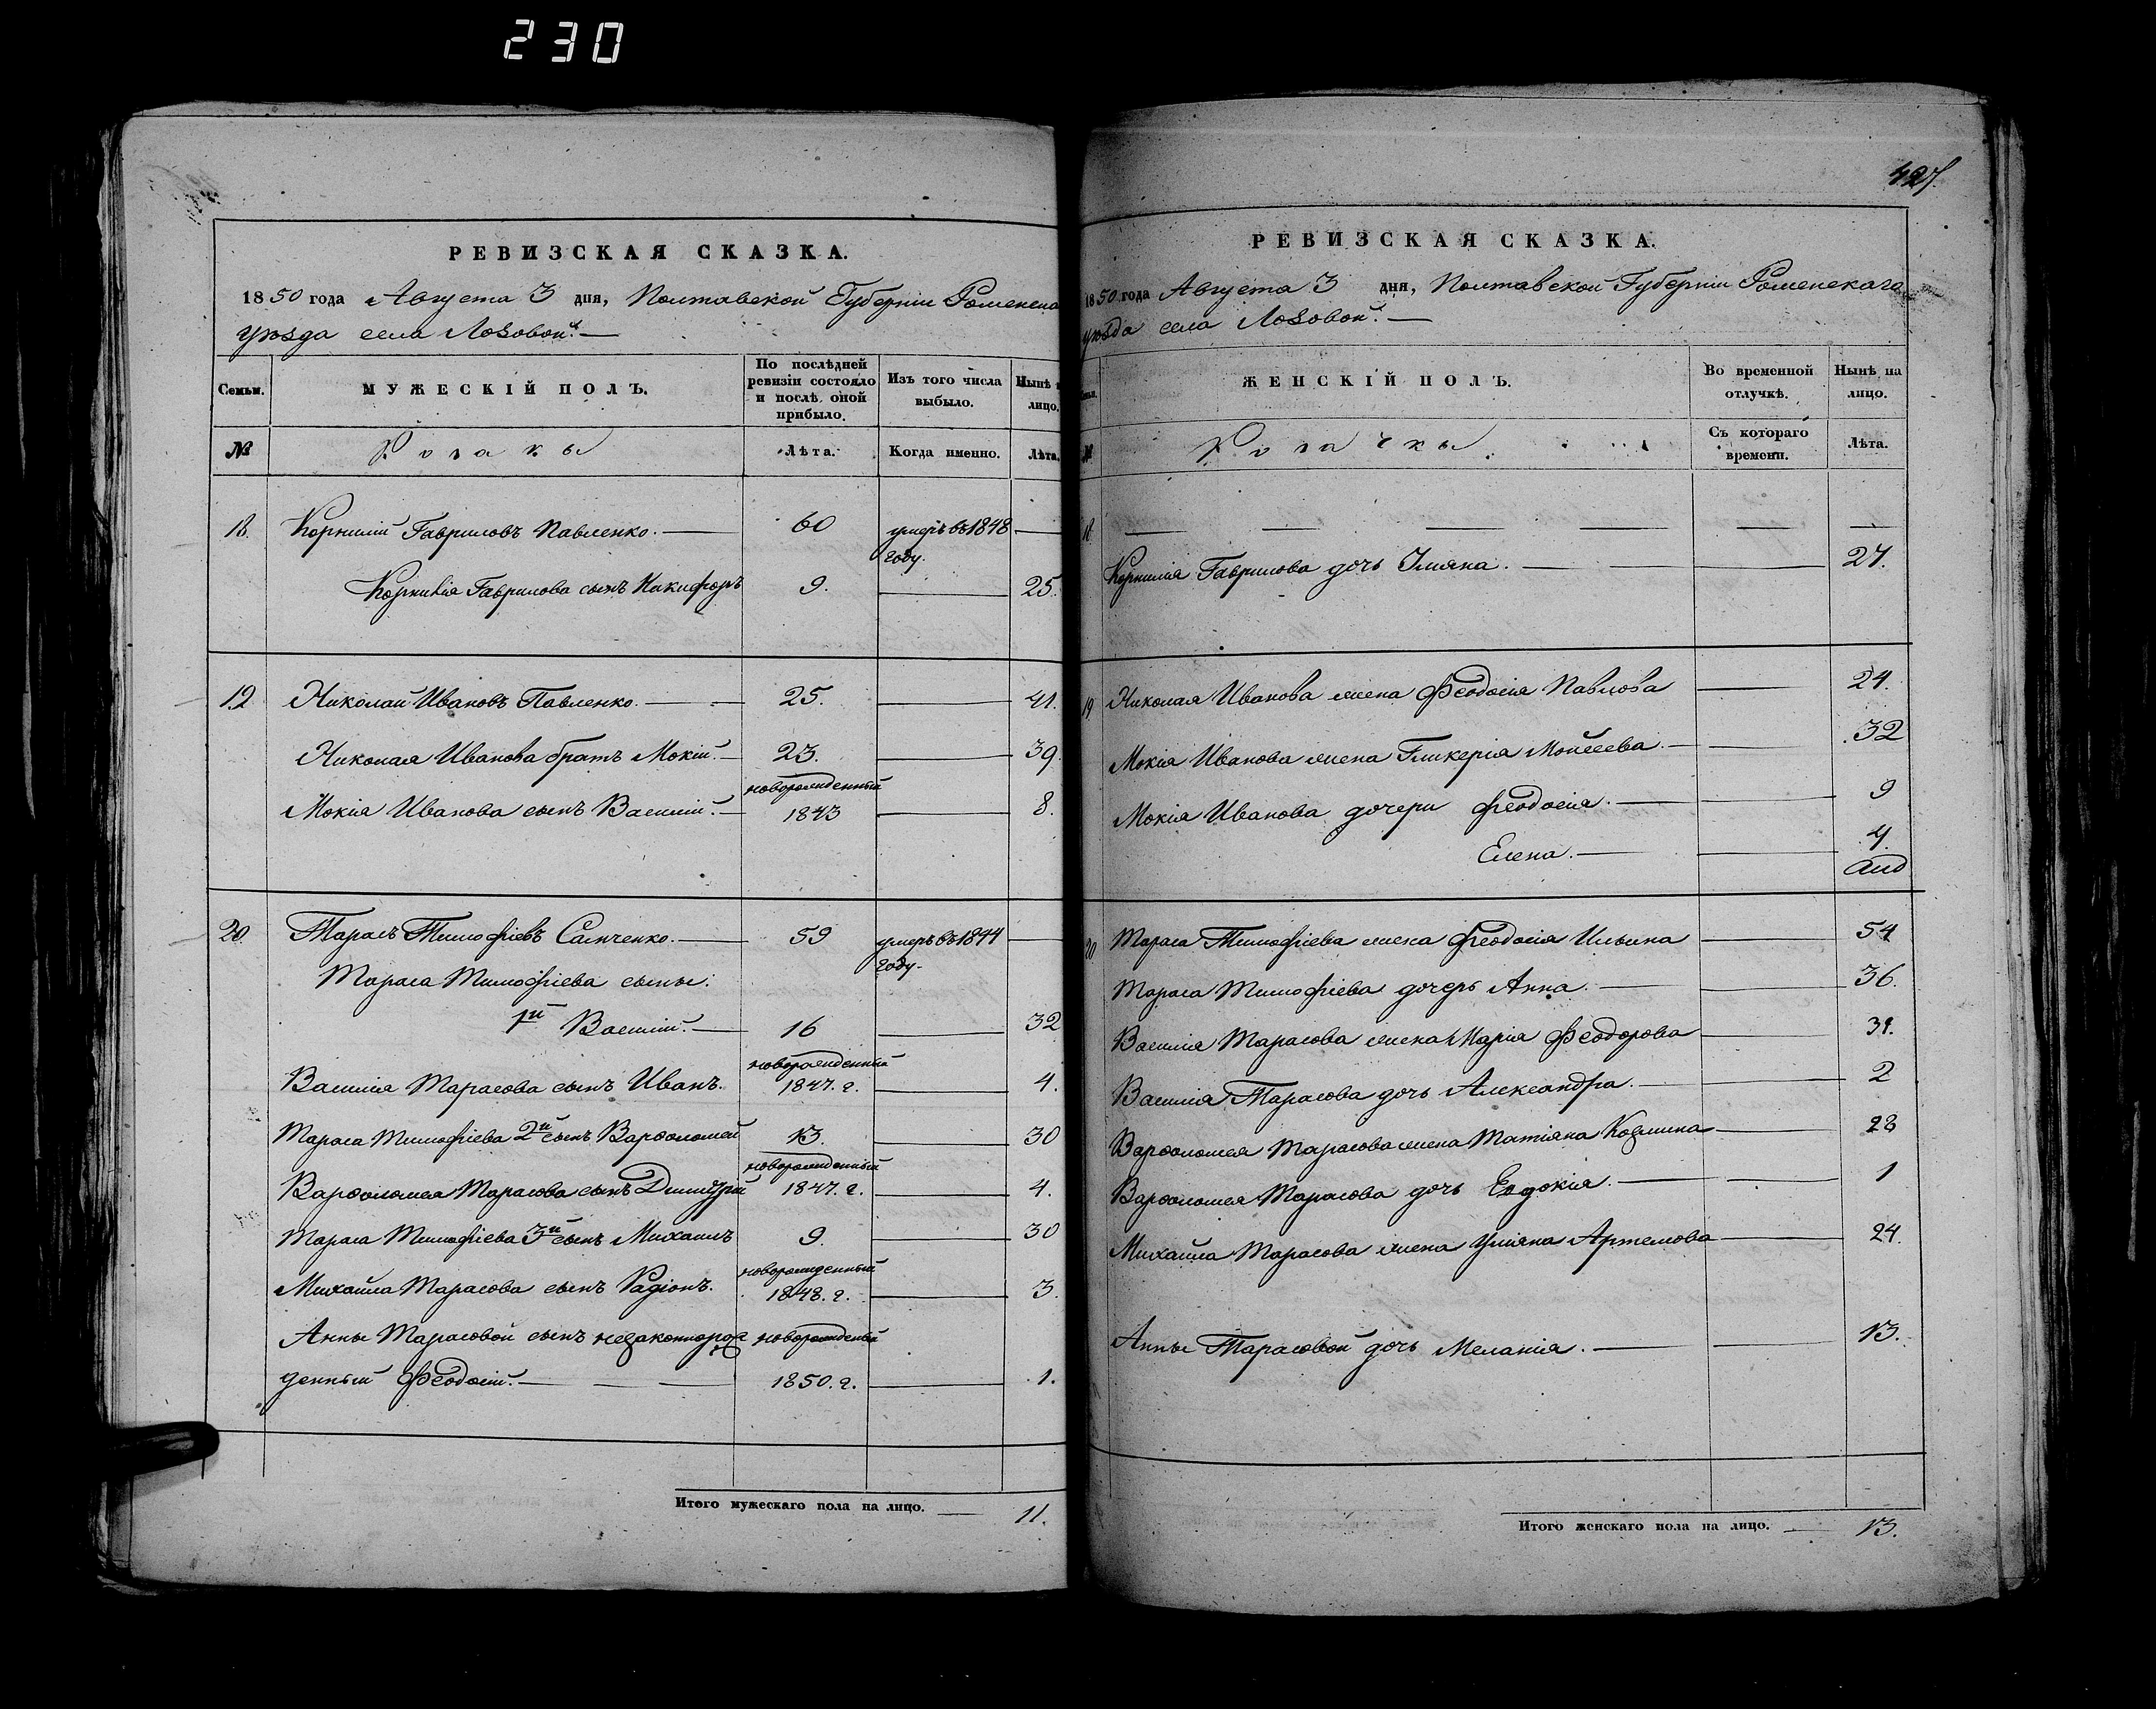 230
РЕВИЗСКАЯ СКАЗКА.
1850 года Августа 3 дня, Полтавской Губерніи Роменска
уѣзда села Лозовой.
Семьи.
МУЖЕСКІЙ ПОЛЪ.
По послѣдней ревизіи состояло и послѣ оной прибыло.
Изъ того числа выбыло.
Нынѣ
лицо.
№
Козаки
Лѣта.
Когда именно.
Лѣта.
18. Корнилій Гавриловъ Павленко. 60 умеръ въ 1848
году.
Корнилія Гаврилова сынъ Никифоръ 9. 25.
19 Николай Ивановъ Павленко. 25. 41.
Николая Иванова братъ Мокій. 23. 39.
новорожденный
Мокія Иванова сынъ Василій. 1843 8.
20. Тарасъ Тимофіевъ Самченко. 59 умеръ въ 1844
году.
Тараса Тимофіева сыны:
1й Василій. 16 32
новорожденный
Василія Тарасова сынъ Иванъ. 1847. г. 4.
Тараса Тимофіева 2й сынъ Варѳоломей 13. 30
новорожденный
Варѳоломея Тарасова сынъ Димитрій 1847. г. 4.
Тараса Тимофіева 3й сынъ Михаилъ 9. 30
новорожденный
Михаила Тарасова сынъ Радіонъ. 1848. г. 3.
Анны Тарасовой сынъ незаконнорож новорожденный
денный Феодосій. 1850. г. 1.
Итого мужескаго пола на лицо. 11.
427.
РЕВИЗСКАЯ СКАЗКА.
1850 года Августа 3 дня, Полтавской Губерніи Роменскаго
уѣзда села Лозовой.
ЖЕНСКІЙ ПОЛЪ.
Во временной отлучкѣ.
Нынѣ на лицо.
№
Козачки
Съ котораго времени.
Лѣта.
18
Корнилія Гаврилова дочь Уліяна. 27.
19 Николая Иванова жена Феодосія Павлова 24.
Мокія Иванова жена Гликерія Мойсеева. 32
Мокія Иванова дочери Феодосія. 9
Елена. 4.
20 Тараса Тимофіева жена Феодосія Ильина 54
Тараса Тимофіева дочерь Анна. 36.
Василія Тарасова жена Марія Феодорова 31.
Василія Тарасова дочь Александра. 2
Варѳоломея Тарасова жена Татіяна Козмина 28
Варѳоломея Тарасова дочь Евдокія. 1
Михайла Тарасова жена Уліяна Артемова 24.
Анны Тарасовой дочь Меланія. 13.
Итого женскаго пола на лицо. 13.